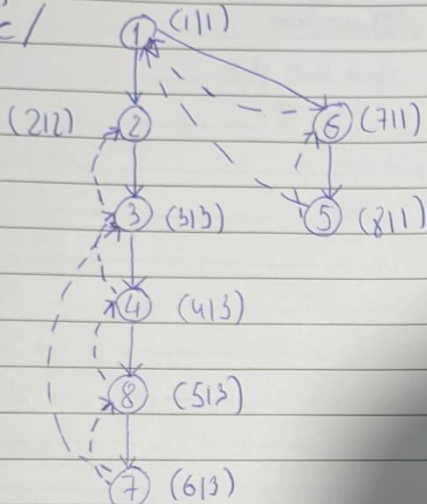 c/
1 (1|1)
(2|2) 2 6 (7|1)
3 (3|3) 5 (8|1)
4 (4|3)
8 (5|3)
7 (6|3)